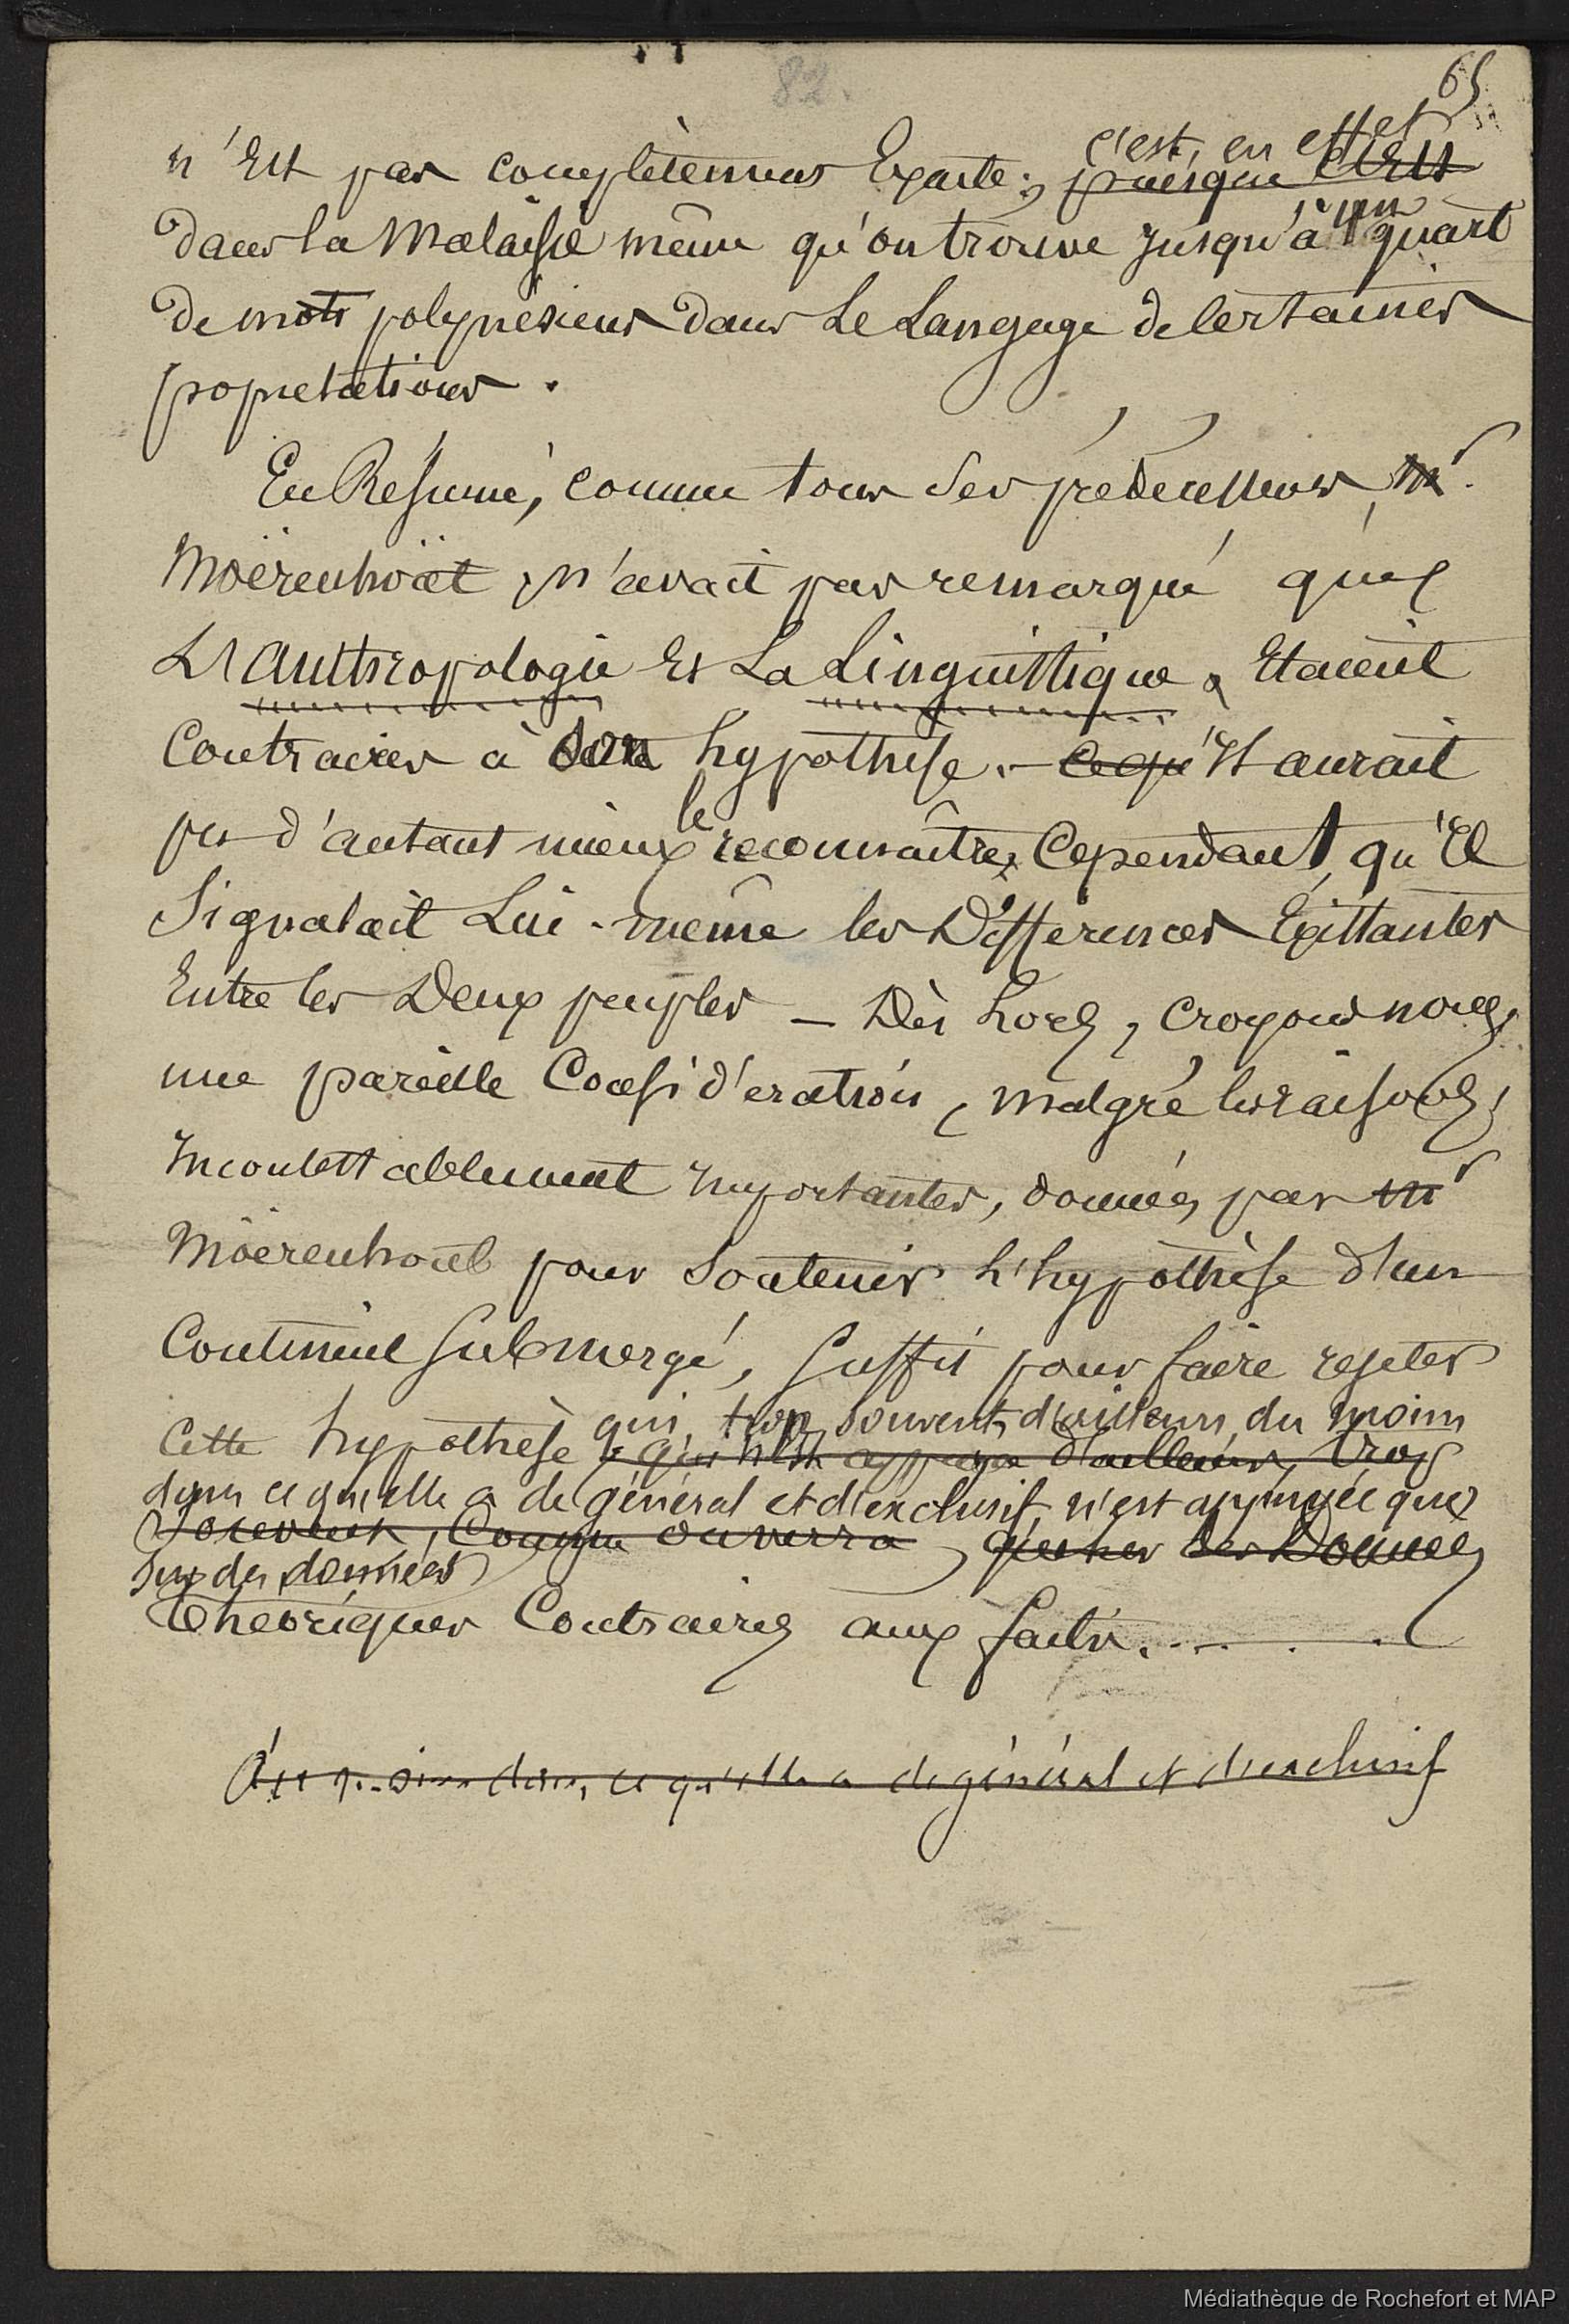 82.
65
c'est, en effet
n'Est pas complètement Exacte ; puisque C'Est
dans la Malaisie même qu'on trouve jusqu'à un quart
de mots polynésiens dans Le Langage de Certaines
populations.
En Résumé, comme tous ses prédécesseurs, Mr.
Moërenhoüt, n'avait pas remarqué que
L'Anthropologie Et La Linguistique, Etaient
Contraires à son hypothèse. — Ce qu'Il aurait
le
pu d'autant mieux reconnaître, Cependant, qu'Il
Signalait Lui-même les Différences Existantes
Entre les Deux peuples — Dès Lors, croyons nous,
une pareille Considération, malgré les raisons,
Incontestablement Importantes, données par Mr
Moërenhout pour Soutenir L'hypothèse d'un
Continent Submergé, Suffit pour faire rejeter
qui, trop souvent, d'ailleurs, du moins
Cette hypothèse, qui n'Est appuyée d'ailleurs, trop
dans ce qu'elle a de général et d'exclusif, n'est appuyée que
Souvent, Comme on verra, que sur des Données
sur des données
Théoriques Contraires aux faits.
du moins dans ce qu'elle a de général et d'exclusif
Médiathèque de Rochefort et MAP